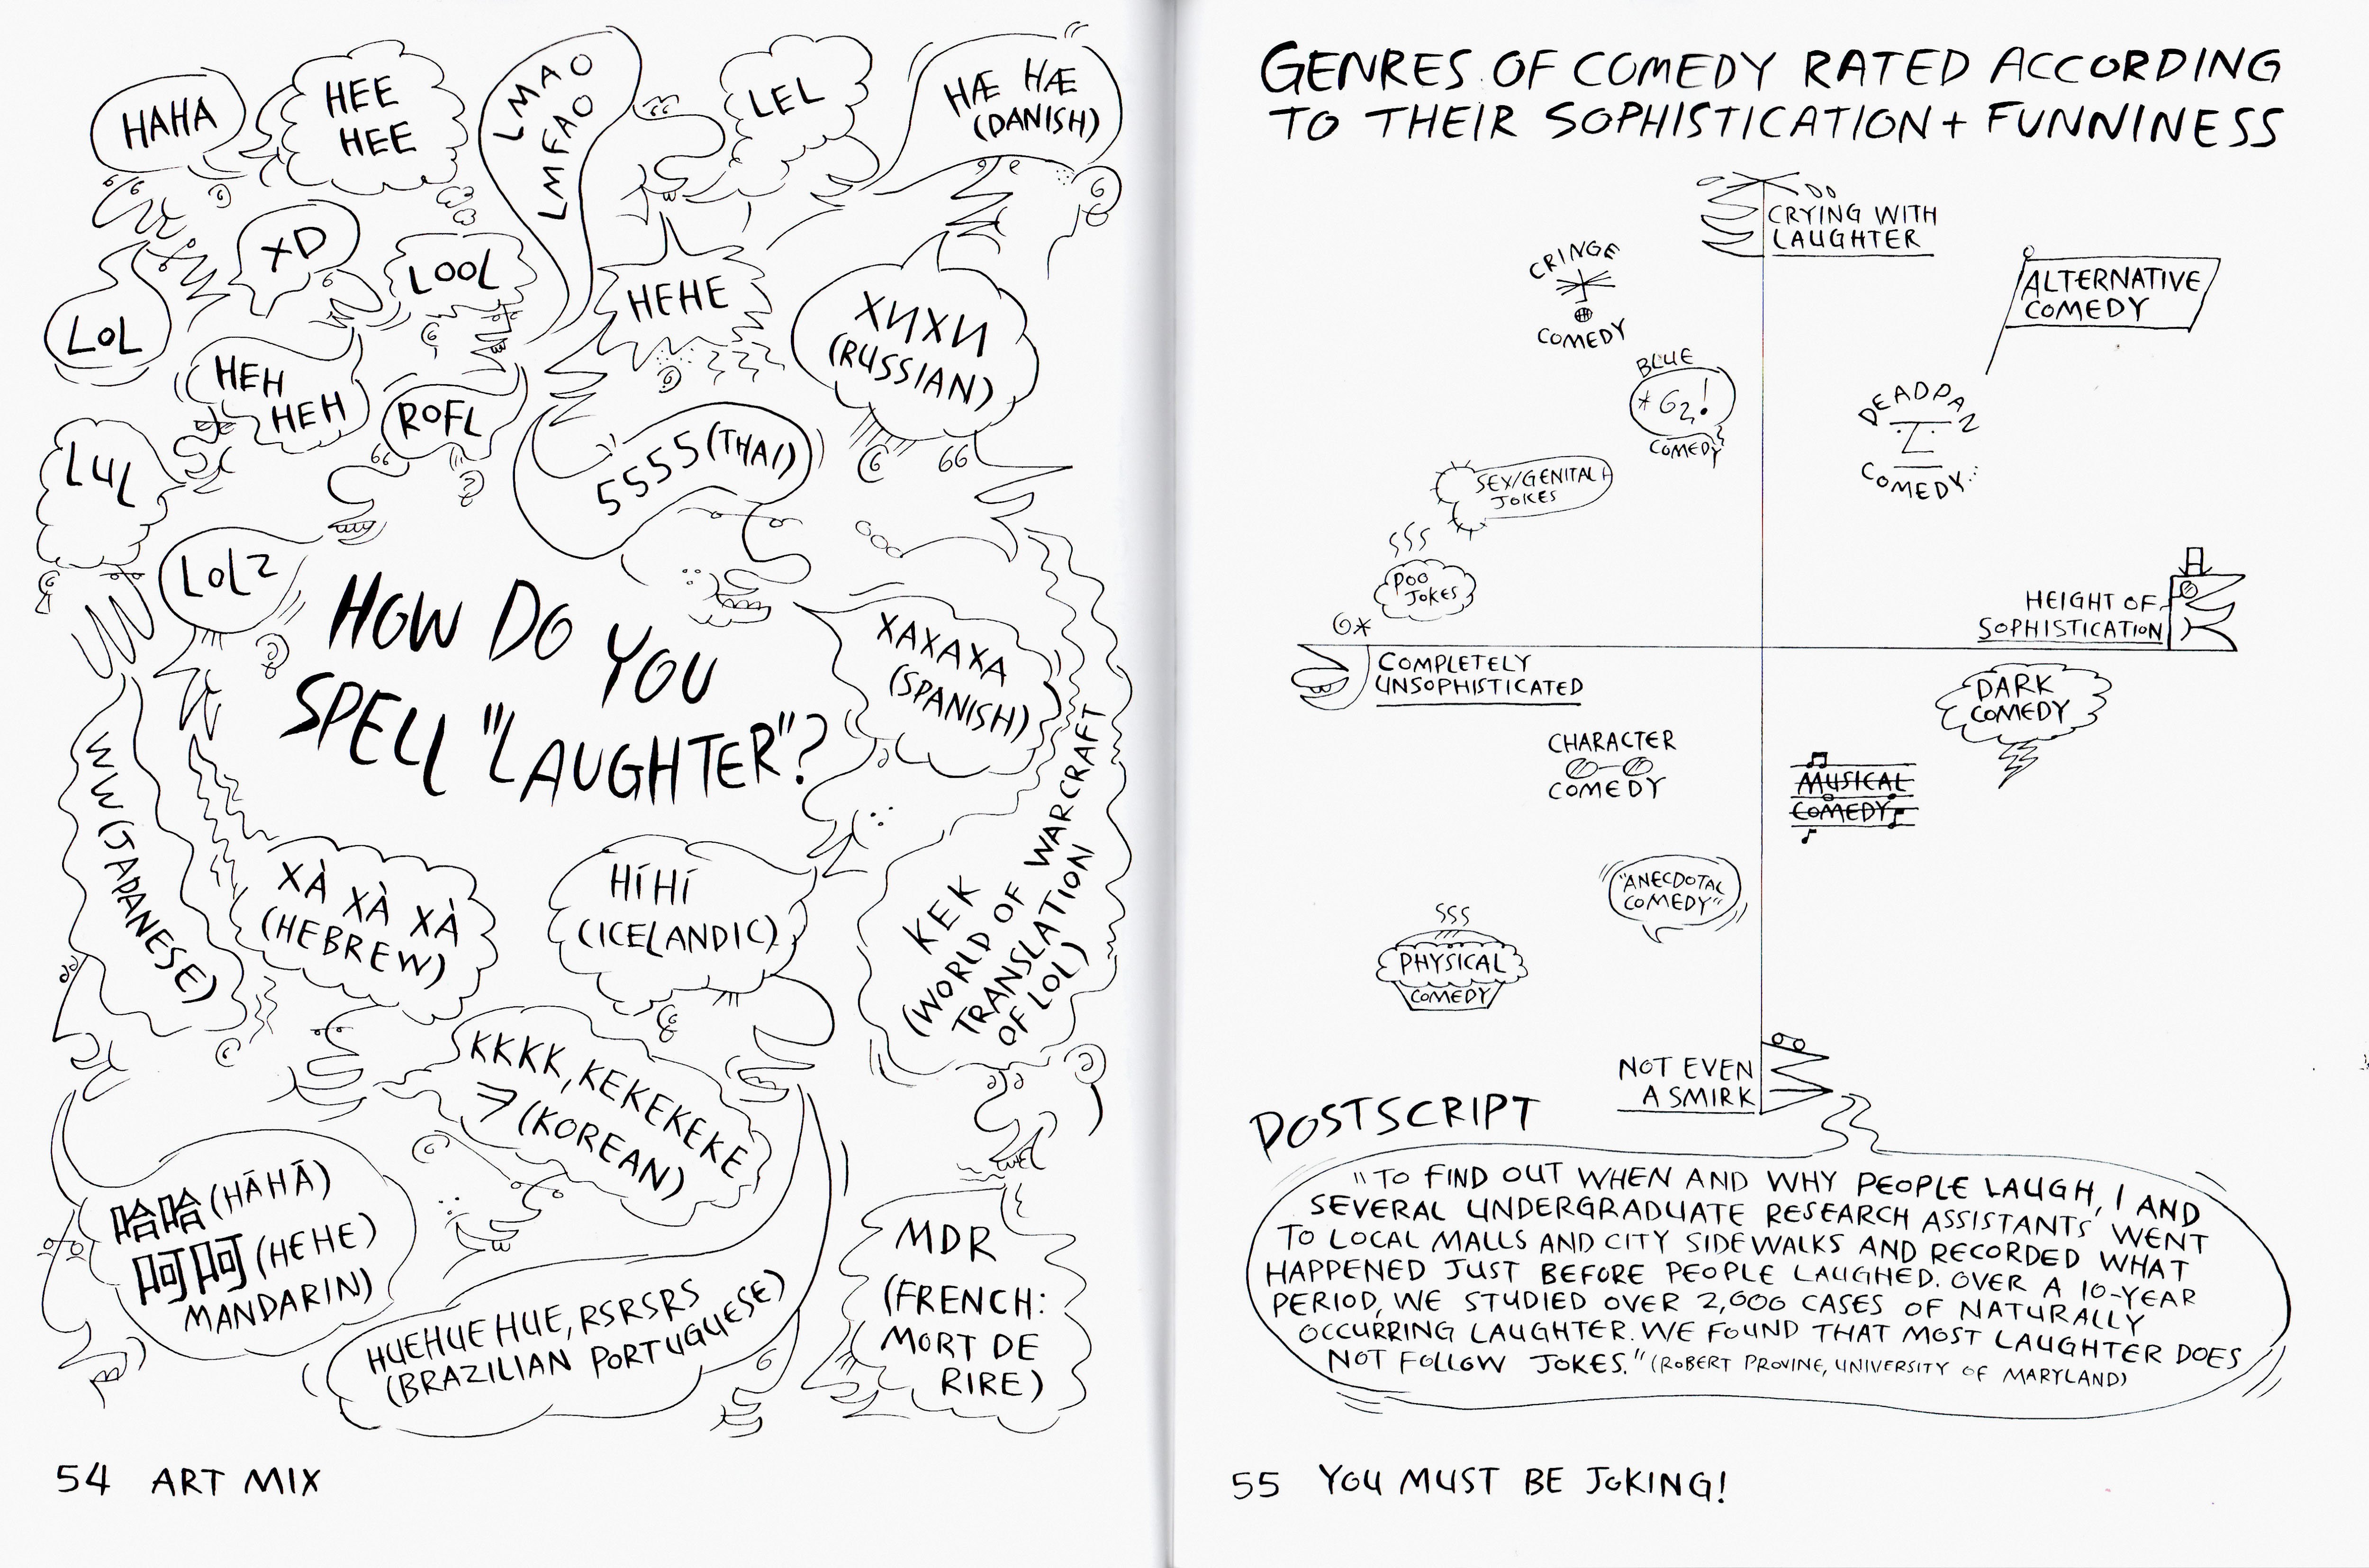 HAHA
HEE
HEE
LMAO
LMFAO
LEL
HÆ HÆ
(DANISH)
XD
LOOL
LOL
HEHE
ХИХИ
(RUSSIAN)
HEH
HEH
ROFL
5555 (THAI)
LUL
LOLZ
HOW DO YOU
SPELL "LAUGHTER"?
XAXAXA
(SPANISH)
WW (JAPANESE)
XÀ XÀ XÀ
(HEBREW)
HÍHÍ
(ICELANDIC)
KEK
(WORLD OF WARCRAFT
TRANSLATION
OF LOL)
KKKK, KEKEKEKE
(KOREAN)
哈哈 (HĀHĀ)
呵呵 (HEHE)
MANDARIN)
HUEHUEHUE, RSRSRS
(BRAZILIAN PORTUGUESE)
MDR
(FRENCH:
MORT DE
RIRE)
54 ART MIX
GENRES OF COMEDY RATED ACCORDING
TO THEIR SOPHISTICATION + FUNNINESS
CRYING WITH
LAUGHTER
CRINGE
COMEDY
ALTERNATIVE
COMEDY
BLUE
COMEDY
DEADPAN
COMEDY
SEX/GENITAL
JOKES
POO
JOKES
HEIGHT OF
SOPHISTICATION
COMPLETELY
UNSOPHISTICATED
DARK
COMEDY
CHARACTER
COMEDY
MUSICAL
COMEDY
"ANECDOTAL
COMEDY"
PHYSICAL
COMEDY
NOT EVEN
A SMIRK
POSTSCRIPT
"TO FIND OUT WHEN AND WHY PEOPLE LAUGH, I AND
SEVERAL UNDERGRADUATE RESEARCH ASSISTANTS WENT
TO LOCAL MALLS AND CITY SIDEWALKS AND RECORDED WHAT
HAPPENED JUST BEFORE PEOPLE LAUGHED. OVER A 10-YEAR
PERIOD, WE STUDIED OVER 2,000 CASES OF NATURALLY
OCCURRING LAUGHTER. WE FOUND THAT MOST LAUGHTER DOES
NOT FOLLOW JOKES." (ROBERT PROVINE, UNIVERSITY OF MARYLAND)
55 YOU MUST BE JOKING!